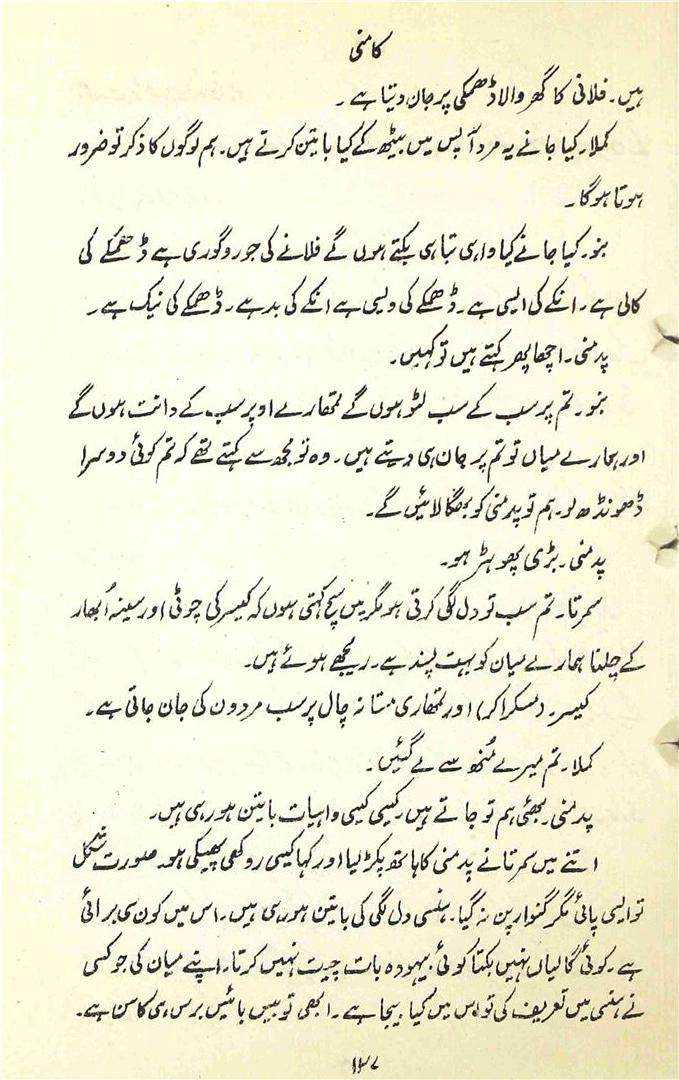 کامنی
ہیں۔ فلانی کا گھر والا ڈھمکی پر جان دیتا ہے۔
کملا۔ کیا جانے یہ مرد آپس میں بیٹھ کے کیا باتین کرتے ہیں۔ ہم لوگوں کا ذکر تو ضرور
ہوتا ہوگا۔
بنو۔ کیا جانے کیا واہی تباہی بکتے ہوں گے فلانے کی جورو گوری ہے ڈھمکے کی
کالی ہے۔ انکے کی ایسی ہے۔ ڈھمکے کی ویسی ہے انکے کی بد ہے۔ ڈھمکے کی نیک ہے۔
پدمنی۔ اچھا پھر کہتے ہیں تو کہیں۔
بنو۔ تم پر سب کے سب لٹو ہوں گے تمھارے اوپر سب کے دانت ہوں گے
اور ہمارے میاں تو تم پر جان ہی دیتے ہیں۔ وہ تو مجھ سے کہتے تھے کہ تم کوئی دوسرا
ڈھونڈھ لو۔ ہم تو پدمنی کو بھگا لائیں گے۔
پدمنی۔ بڑی پھوہڑ ہو۔
سمرتا۔ تم سب تو دل لگی کرتی ہو مگر میں سچ کہتی ہوں کہ کیسر کی چوٹی اور سینہ اُبھار
کے چلنا ہمارے میان کو بہت پسند ہے۔ ریجھے ہوئے ہیں۔
کیسر۔ (مسکرا کر) اور تمھاری مستانہ چال پر سب مردون کی جان جاتی ہے۔
کملا۔ تم میرے مُنھ سے لے گئیں۔
پدمنی۔ بھئی ہم تو جاتے ہیں۔ کیسی کیسی واہیات باتین ہو رہی ہیں۔
اتنے میں سمرتا نے پدمنی کا ہاتھ پکڑ لیا اور کہا کیسی روکھی پھیکی ہو۔ صورت شکل
تو ایسی پائی مگر گنوارپن نہ گیا۔ ہنسی دل لگی کی باتین ہو رہی ہیں۔ اس میں کون سی برائی
ہے۔ کوئی گالیاں نہیں بکتا کوئی بیہودہ بات چیت نہیں کرتا۔ اپنے میان کی جو کسی
نے ہنسی میں تعریف کی تو اس میں کیا بیجا ہے۔ ابھی تو بیس بائیس برس ہی کا سن ہے۔
۱۳۷